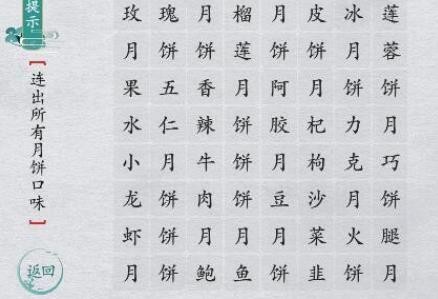 提示
【连出所有月饼口味】
返回
玫 瑰 月 榴 月 皮 冰 莲
月 饼 饼 莲 饼 饼 月 蓉
果 五 香 月 阿 月 饼 饼
水 仁 辣 饼 胶 杞 力 月
小 月 牛 饼 月 枸 克 巧
龙 饼 肉 饼 豆 沙 月 饼
虾 饼 月 月 月 菜 火 腿
月 饼 鲍 鱼 饼 韭 饼 月